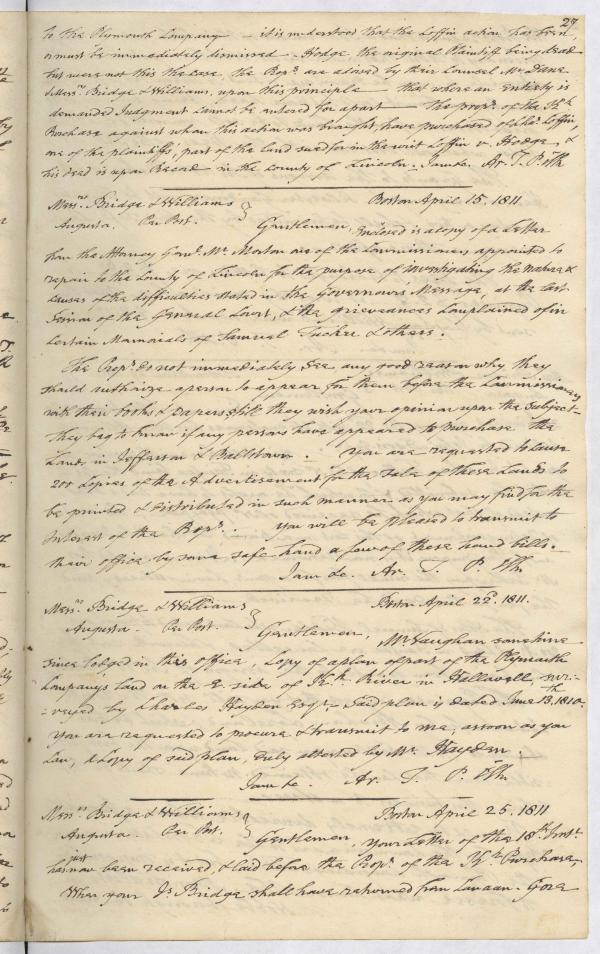 27
to the Plymouth Company — it is understood that the Loffin action has been,
or must be immediately dismissed. Hodge the original Plaintiff being dead
but were not this the case, the Propʳˢ are advised by their Counsel Mʳ Dane
& Messʳˢ Bridge & Williams, upon this principle — that where an Entirety is
demanded Judgment cannot be entered for a part — the propʳˢ of the Kᵏ
Purchase against whom this action was brought, have purchased of Loffin,
one of the plaintiffs, part of the land sued for in the writ Loffin v. Hodge, &
his deed is upon Record in the County of Lincoln. I am &c. Ar. T. P. Clk
Messʳˢ Bridge & Williams } Boston April 15. 1811
Augusta. Per Post. Gentlemen, Enclosed is a copy of a Letter
from the Attorney Genˡ. Mʳ. Morton one of the Commissioners appointed to
repair to the County of Lincoln for the purpose of investigating the nature &
causes of the difficulties stated in the Governour's Message, at the last
Session of the General Court, & the grieveances complained of in
certain Memorials of Samuel Tucker & others.
The Propʳˢ do not immediately see any good reason why they
should authorize a person to appear for them before the Commissioners
with their books & papers, still they wish your opinion upon the Subject —
They beg to know if any persons have appeared to purchase the
Lands in Jefferson & Balltown. You are requested to cause
200 Copies of the Advertisement for the Sale of these Lands to
be printed & distributed in such manner as you may find for the
Interest of the Propʳˢ. You will be pleased to transmit to
their office by some safe hand a few of these hand bills.
I am &c. Ar. T. P. Clk
Messʳˢ Bridge & Williams } Boston April 22ᵈ. 1811.
Augusta. Per Post. Gentlemen, Mʳ Vaughan sometime
since lodged in this office, Copy of a plan of part of the Plymouth
Company's Land on the E side of Kᵏ River in Hallowell, sur=
=veyed by Charles Hayden Esqʳ — Said plan is dated June 13ᵗʰ. 1810.
You are requested to procure & transmit to me, as soon as you
Can, a Copy of said plan, duly attested by Mʳ. Hayden.
I am &c. Ar. T. P. Clk
Messʳˢ Bridge & Williams } Boston April 25. 1811
Augusta. Per Post. Gentlemen, your Letter of the 18ᵗʰ. Instᵗ
has just now been received, & laid before the Propʳˢ of the Kᵏ Purchase,
When your Jˢ Bridge shall have returned from Canaan. Gore